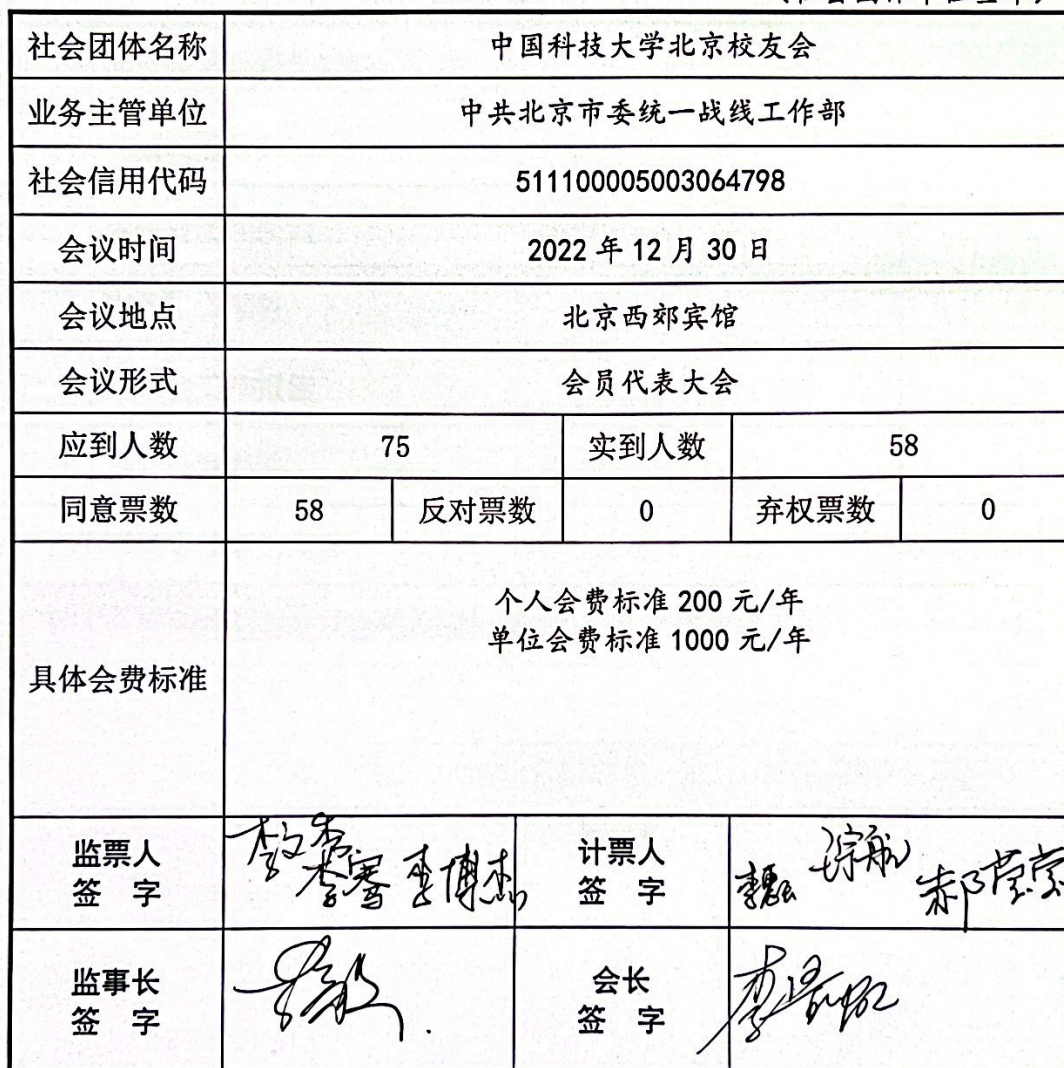 社会团体名称 中国科技大学北京校友会
业务主管单位 中共北京市委统一战线工作部
社会信用代码 511100005003064798
会议时间 2022 年 12 月 30 日
会议地点 北京西郊宾馆
会议形式 会员代表大会
应到人数 75 实到人数 58
同意票数 58 反对票数 0 弃权票数 0
个人会费标准 200 元/年
单位会费标准 1000 元/年
具体会费标准
监票人 计票人
签 字 李博杰 签 字
监事长 会长
签 字 签 字